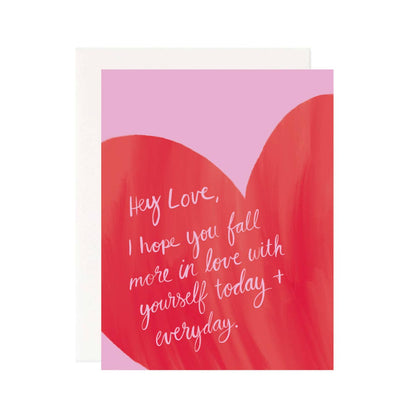 Hey Love,
I hope you fall
more in love with
yourself today +
everyday.